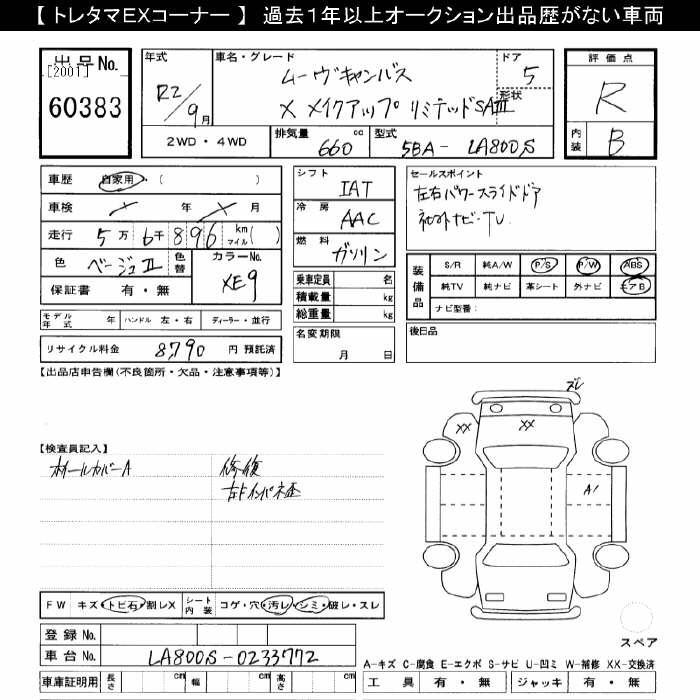 【 トレタマEXコーナー 】 過去1年以上オークション出品歴がない車両
出品No.
[2001]
60383
年式 R2/9月
車名・グレード ムーヴキャンバス
X メイクアップリミテッドSAⅢ
ドア 5
形状
2WD・4WD
排気量 660 cc
型式 5BA- LA800S
評価点
R
内装 B
車歴 自家用・( )
車検 年 月
走行 5万6千896 km マイル( )
色 ベージュⅡ 色替
カラーNo. XE9
保証書 有・無
モデル年式 年 ハンドル 左・右 ディーラー・並行
リサイクル料金 8,790 円 預託済
シフト IAT
冷房 AAC
燃料 ガソリン
乗車定員 名
積載量 kg
総重量 kg
名変期限 月 日
セールスポイント
左右パワースライドドア
社外ナビ・TV
装備品
S/R 純A/W P/S P/W ABS
純TV 純ナビ 革シート 外ナビ エアB
ナビ型番:
後日品
【出品店申告欄(不良箇所・欠品・注意事項等)】
【検査員記入】
ホイールカバーA
修復
左Fインパネ歪
ズレ
XX
XX
A1
FW キズ・トビ石・割レX
シート内装 コゲ・穴・汚レ・シミ・破レ・スレ
登録No.
車台No. LA800S-0233772
車庫証明用 長さ cm 幅 cm 高さ cm
スペア
A-キズ C-腐食 E-エクボ S-サビ U-凹ミ W-補修 XX-交換済
工具 有・無 ジャッキ 有・無